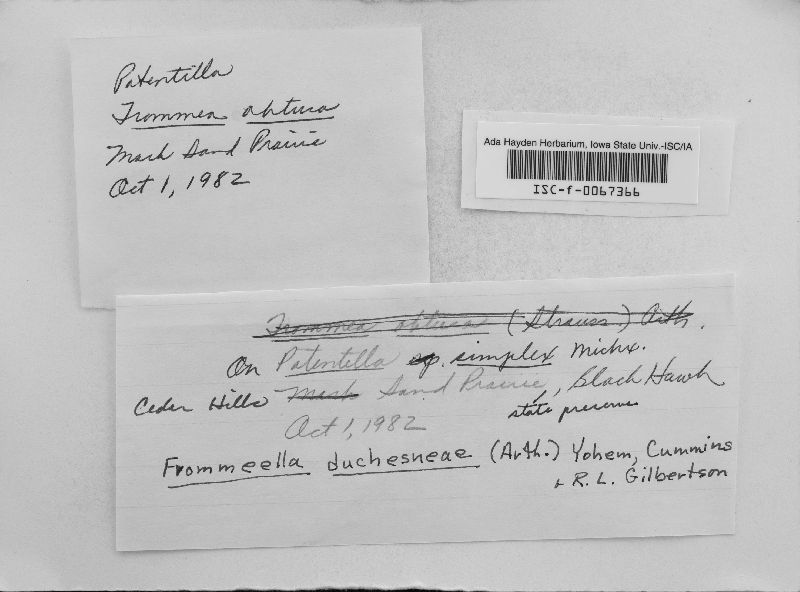 Potentilla
Frommea obtusa
Mark Sand Prairie
Oct 1, 1982
Ada Hayden Herbarium, Iowa State Univ.-ISC/IA
ISC-f-0067366
Frommea obtusa (Strauss.) Arth.
On Potentilla sp. simplex Michx.
Cedar Hills Mark Sand Prairie, Black Hawk
state preserve
Oct 1, 1982
Frommeella duchesneae (Arth.) Yohem, Cummins
+ R. L. Gilbertson